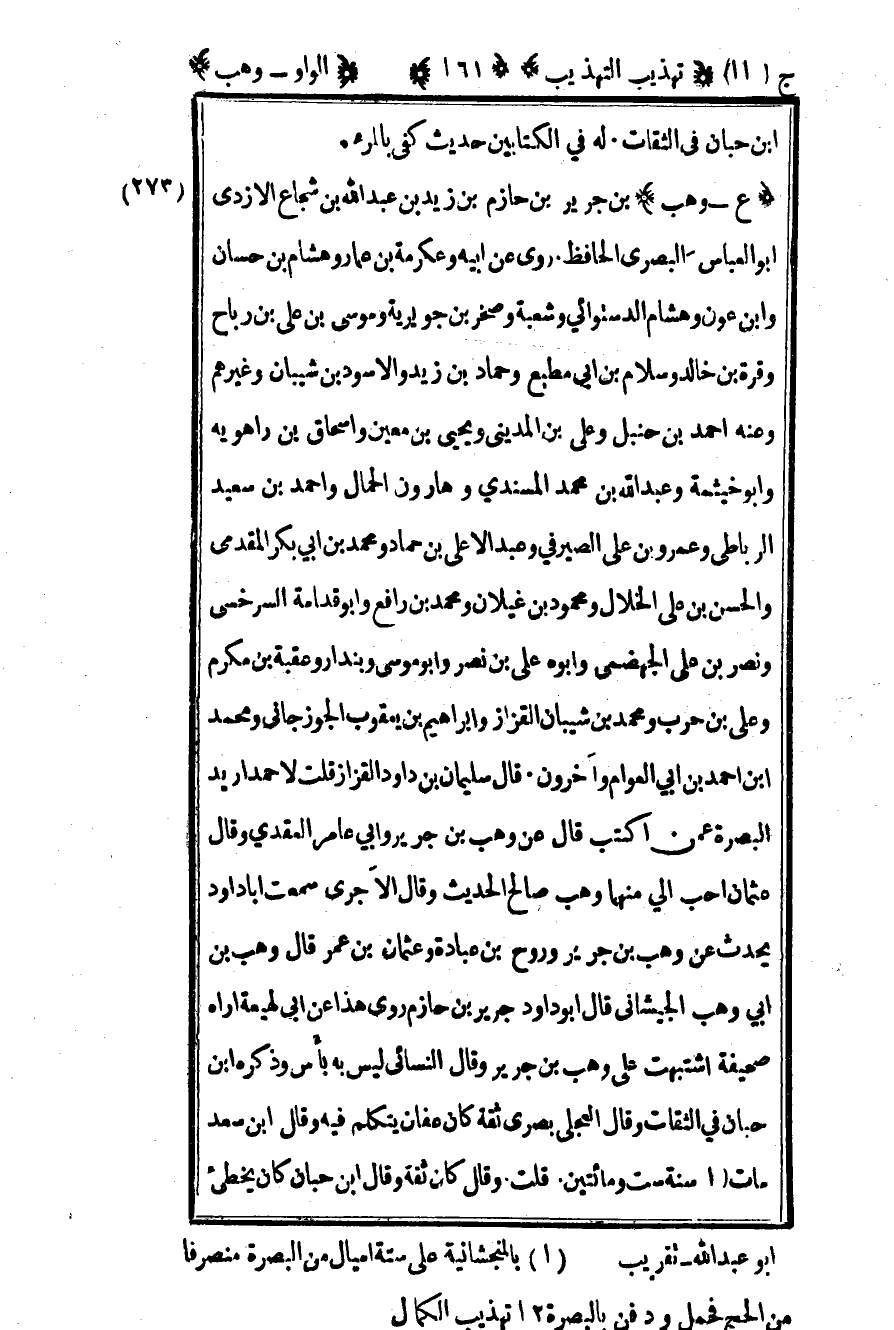 ج (١١) ﴿ تهذيب التهذيب ﴾ ﴿ ١٦١ ﴾ ﴿ الواو ـ وهب ﴾
ابن حبان فى الثقات ٠ له في الكتابين حديث كفى بالمرء ٠
﴿ ع ـ وهب ﴾ بن جرير بن حازم بن زيد بن عبدالله بن شجاع الازدى (٢٧٣)
ابو العباس البصرى الحافظ ٠ روى عن ابيه وعكرمة بن عمار وهشام بن حسان
وابن عون وهشام الدستوائي وشعبة وصخر بن جويرية وموسى بن على بن رباح
وقرة بن خالد وسلام بن ابي مطيع وحماد بن زيد والاسود بن شيبان وغيرهم
وعنه احمد بن حنبل وعلى بن المدينى ويحيى بن معين واسحاق بن راهويه
وابو خيثمة وعبدالله بن محمد المسندي و هارون الحمال واحمد بن سعيد
الرباطى وعمرو بن على الصيرفي وعبد الاعلى بن حماد ومحمد بن ابي بكر المقدمى
والحسن بن على الخلال ومحمود بن غيلان ومحمد بن رافع وابو قدامة السرخسى
ونصر بن على الجهضمى وابوه على بن نصر وابو موسى وبندار وعقبة بن مكرم
وعلى بن حرب ومحمد بن شيبان القزاز وابراهيم بن يعقوب الجوزجانى ومحمد
ابن احمد بن ابي العوام وآخرون ٠ قال سليمان بن داود القزاز قلت لاحمد اريد
البصرة عمن اكتب قال عن وهب بن جرير وابي عامر العقدي وقال
عثمان احب الي منهما وهب صالح الحديث وقال الآجرى سمعت اباداود
يحدث عن وهب بن جرير وروح بن عبادة وعثمان بن عمر قال وهب بن
ابي وهب الجيشانى قال ابو داود جرير بن حازم روى هذا عن ابى لهيعة اراه
صحيفة اشتبهت على وهب بن جرير وقال النسائى ليس به بأس وذكره ابن
حبان في الثقات وقال العجلى بصرى ثقة كان عفان يتكلم فيه وقال ابن سعد
مات (١ سنة ست ومائتين ٠ قلت ٠ وقال كان ثقة وقال ابن حبان كان يخطئ
ابو عبدالله ـ تقريب (١) بالمنجشانية على ستة اميال من البصرة منصرفا
من الحج فحمل و دفن بالبصرة ١٢ تهذيب الكمال